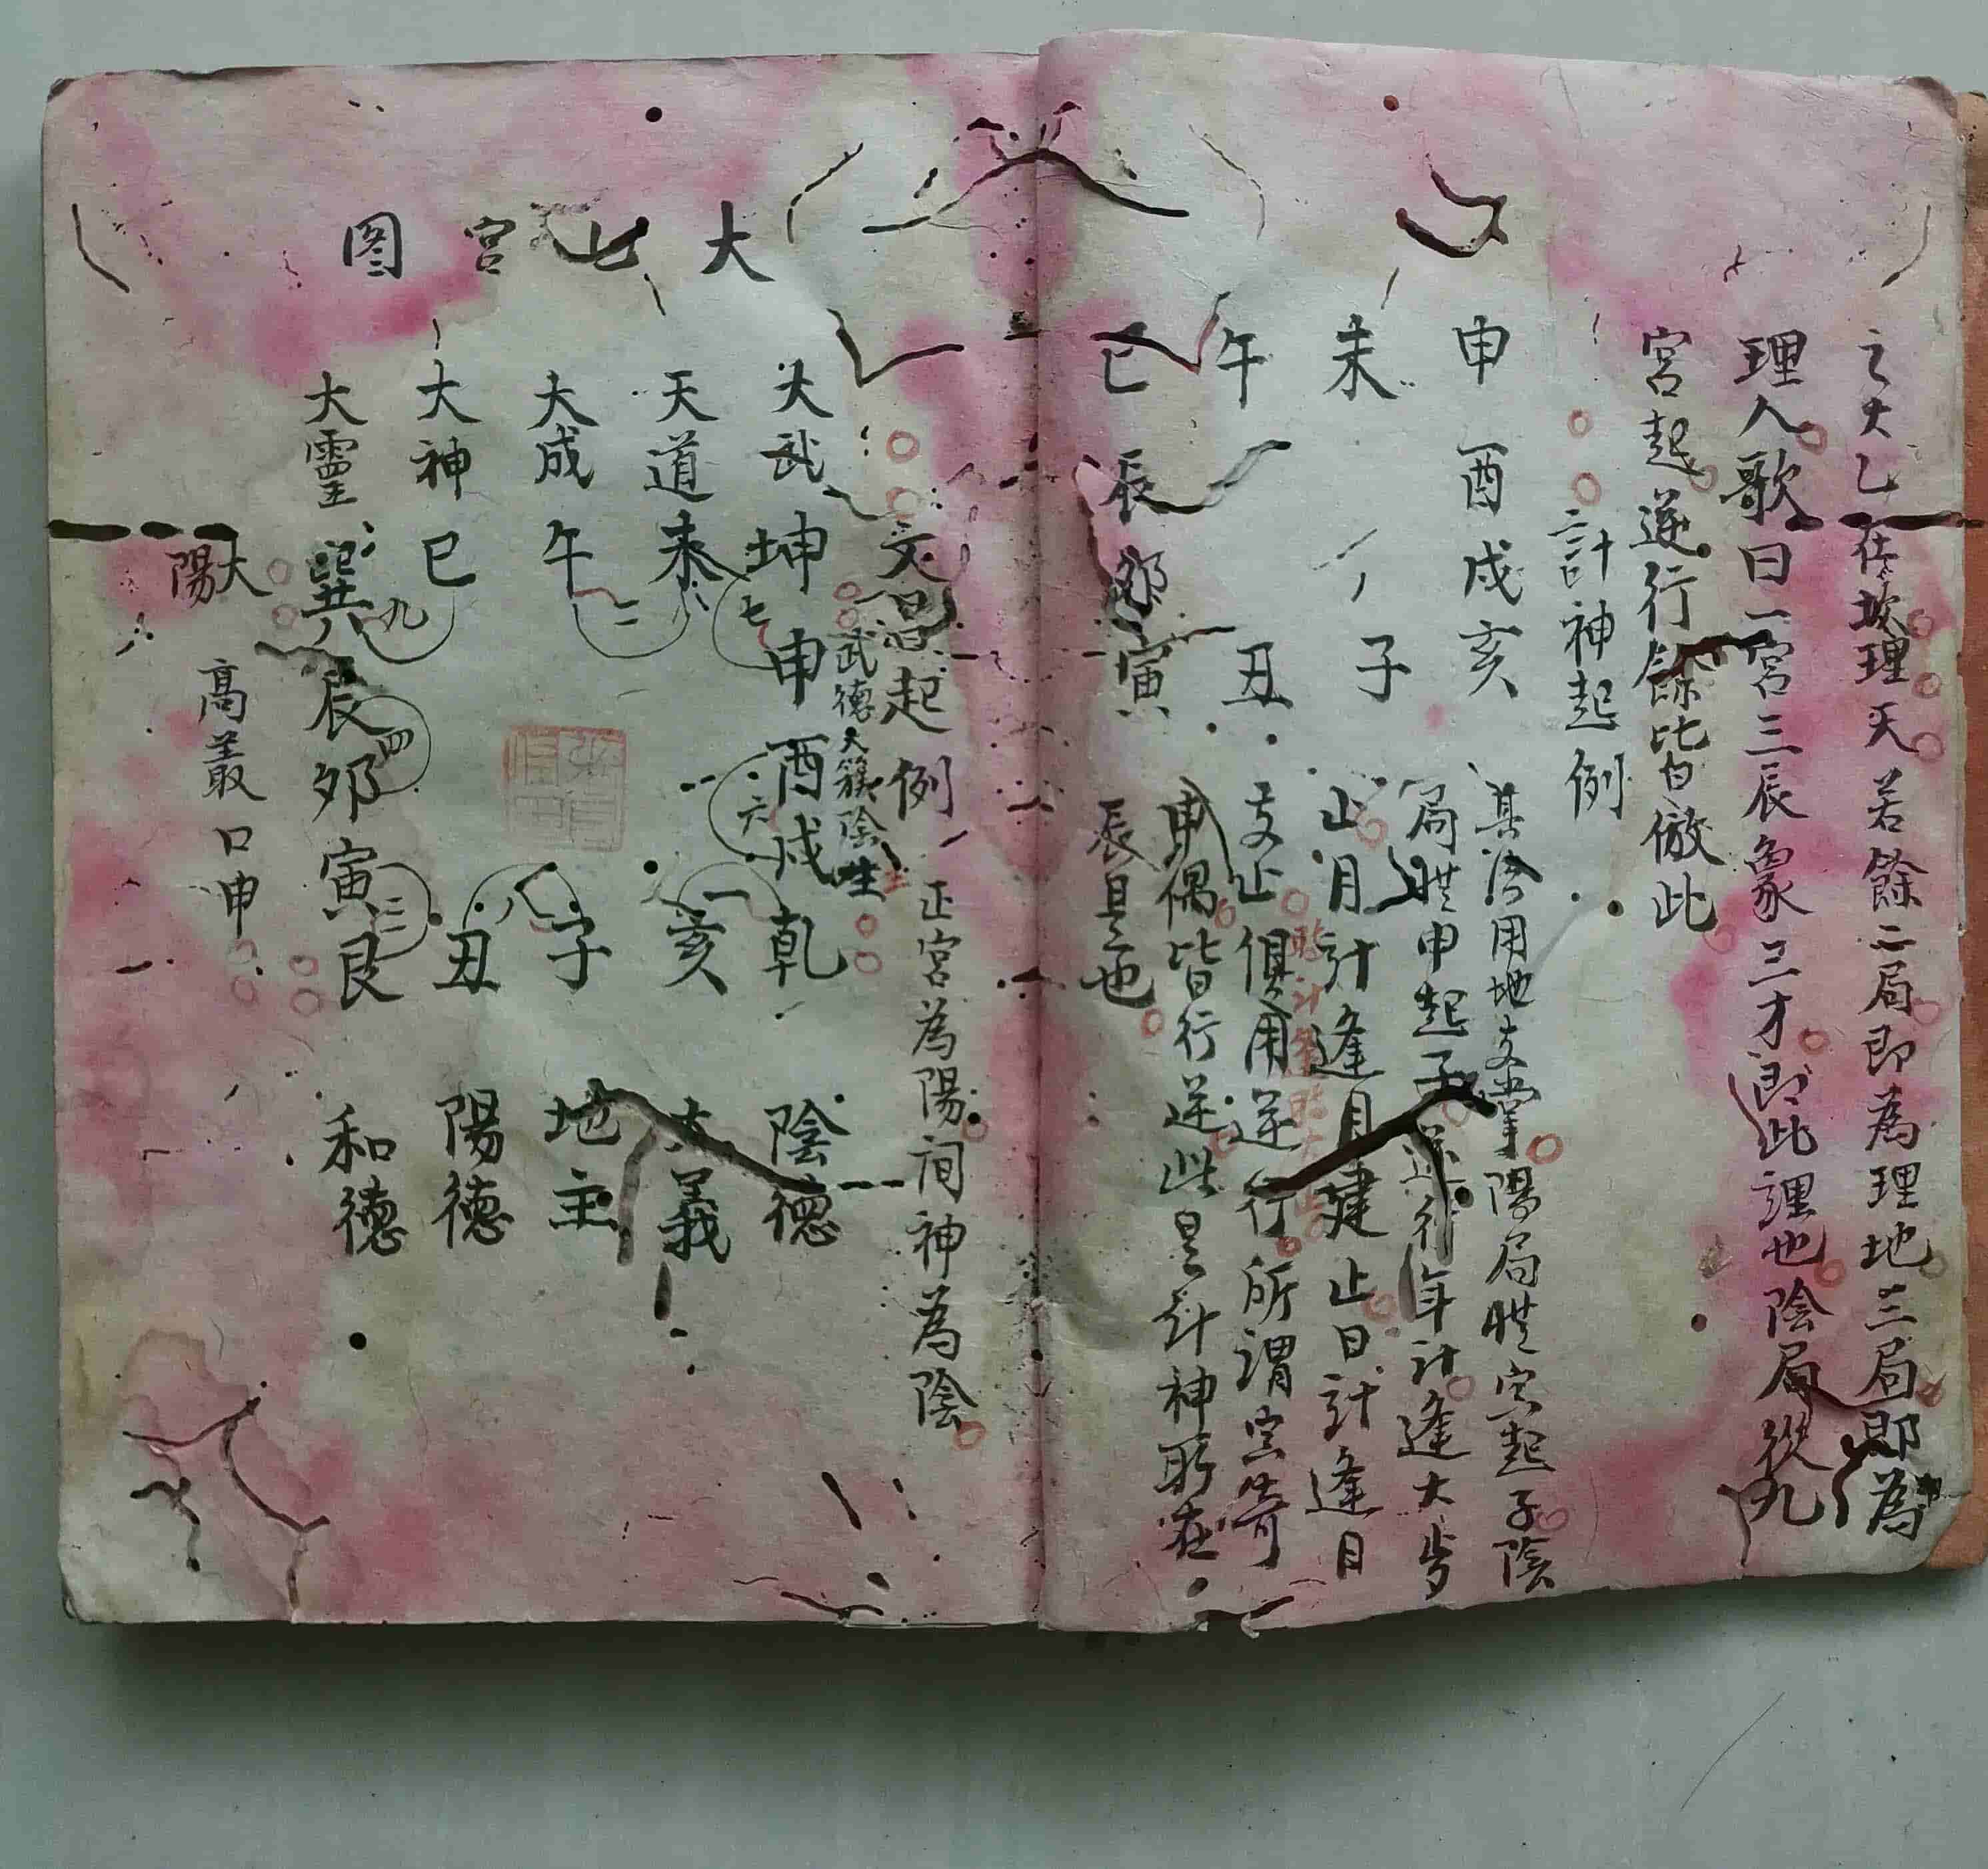 之大乙在坎理天若餘二局即為理地三局即為
理人歌曰一宮三辰象三才即此理也陰局從九
宮起逆行餘皆倣此
計神起例
申酉戌亥
未子
午丑
巳辰卯寅
其法用地支掌陽局排寅起子陰
局排申起子逆行年計逢大歲
止月計逢月建止日計逢日
支止俱用逆行所謂寅奇
申偶皆行逆此是計神所在
辰是也
文昌起例
正宮為陽间神為陰
大七宮图
武德大簇陰生
大武坤申酉戌乾陰德
七
六
天道未亥大義
一
大成午子地主
二
八
大神巳丑陽德
九
大靈巽辰卯寅艮和德
四
三
大陽
高叢口申